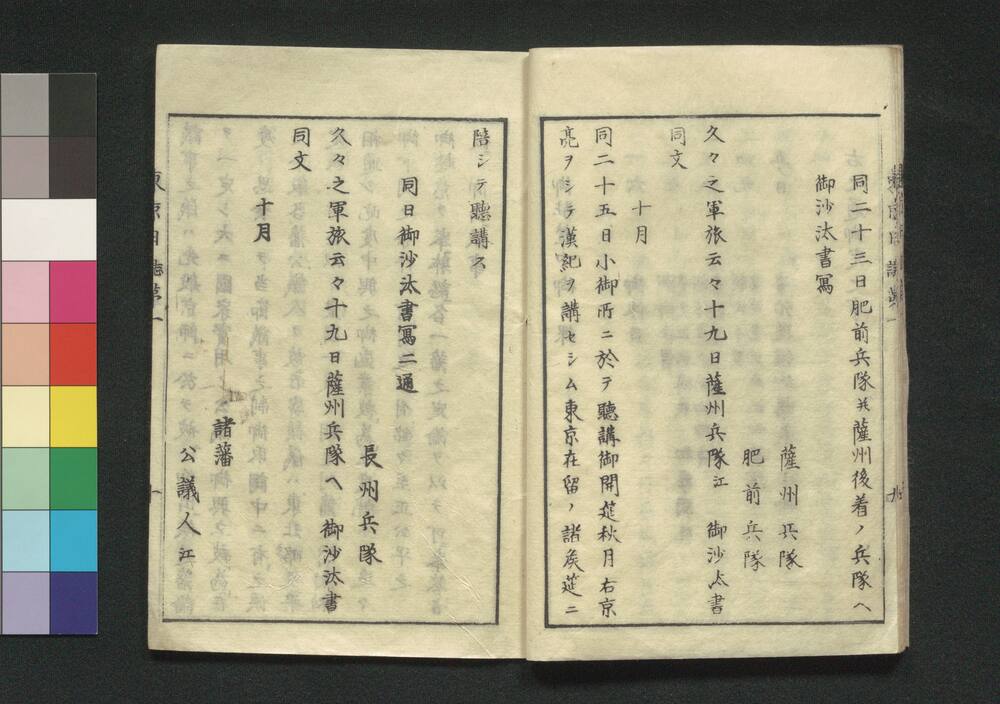 同二十三日肥前兵隊并薩州後着ノ兵隊ヘ
御沙汰書寫
薩州兵隊
肥前兵隊
久々之軍旅云々十九日薩州兵隊江　御沙汰書
同文
十月
同二十五日小御所ニ於テ聽講御開莚秋月右京
亮ヲシテ漢紀ヲ講セシム東京在留ノ諸矦莚ニ
陪シテ聽講ス
同日御沙汰書寫二通
長州兵隊
久々之軍旅云々十九日薩州兵隊ヘ　御沙汰書
同文
十月
諸藩
公議人江
東京日誌第一
十